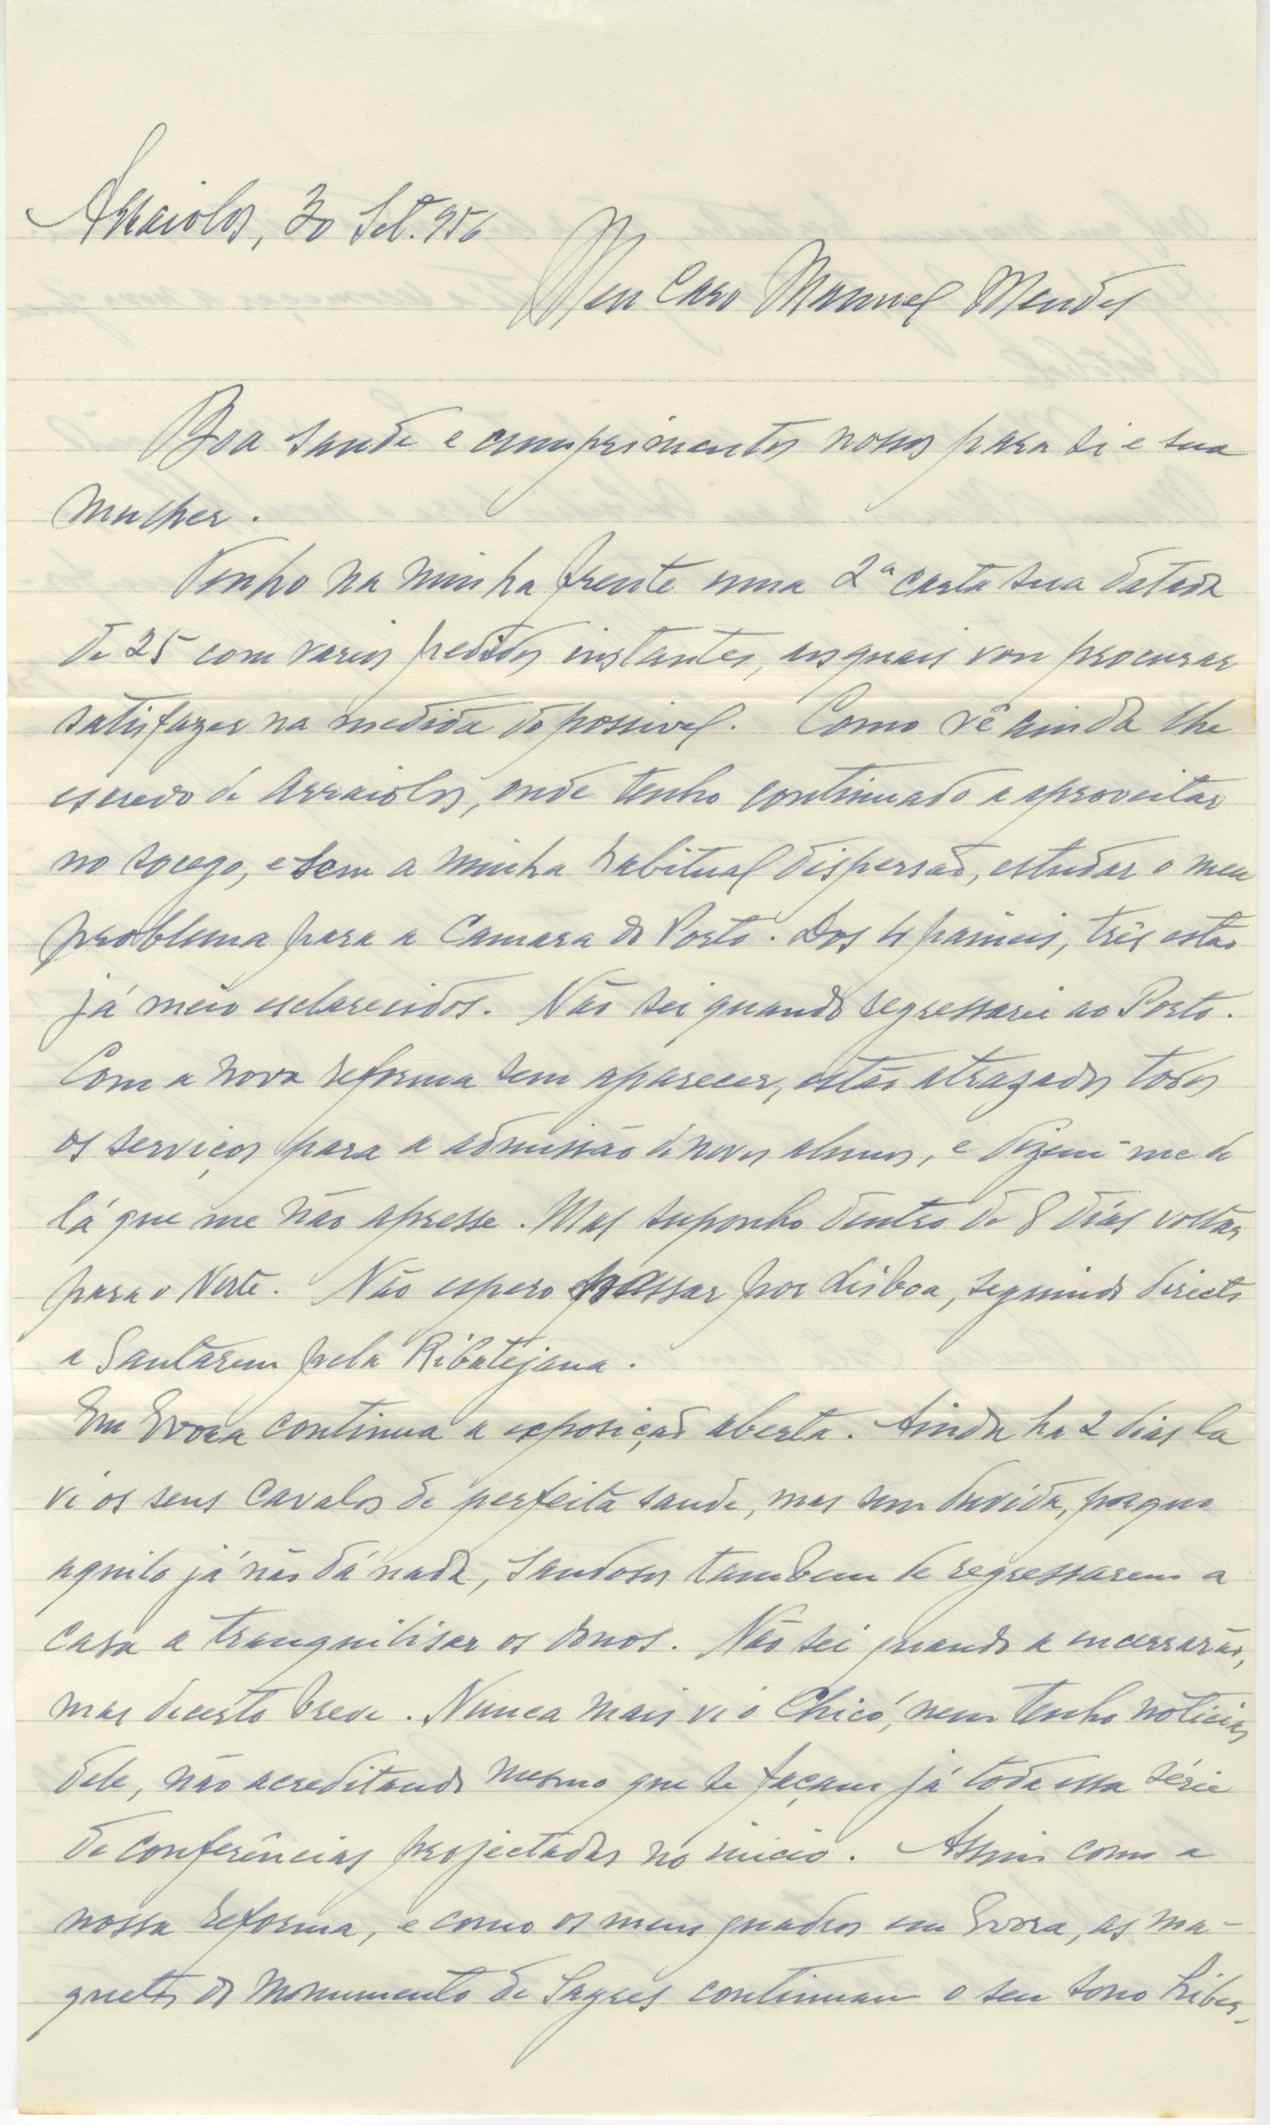 Arraiolos, 30 Set. 956
Meu Caro Manuel Mendes
Boa saude e cumprimentos nossos para si e sua
mulher.
Tenho na minha frente uma 2ª carta sua datada
de 25 com varios pedidos instantes, aos quais vou procurar
satisfazer na medida do possivel. Como vê ainda lhe
escrevo de Arraiolos, onde tenho continuado a aproveitar
no socego, e sem a minha habitual dispersão, estudar o meu
problema para a Camara do Porto. Dos 4 paineis, três estão
já meio esclarecidos. Não sei quando regressarei ao Porto.
Com a nova reforma sem aparecer, estão atrazados todos
os serviços para a admissão de novos alunos, e dizem-me de
lá que me não apresse. Mas suponho dentro de 8 dias voltar
para o Norte. Não espero passar por Lisboa, seguindo directo
a Santarem pela Ribatejana.
Em Evora continua a exposição aberta. Ainda ha 2 dias la
vi os seus cavalos de perfeita saude, mas sem duvida, porque
aquilo já não dá nada, saudosos tambem de regressarem a
casa a tranquilisar os donos. Não sei quando a encerrarão,
mas decerto breve. Nunca mais vi o Chicó, nem tenho noticias
dele, não acreditando mesmo que se façam já toda essa série
de conferências projectadas no inicio. Assim como a
nossa reforma, e como os meus quadros em Evora, as ma-
quetes do Monumento de Sagres continuam o seu sono hiber-